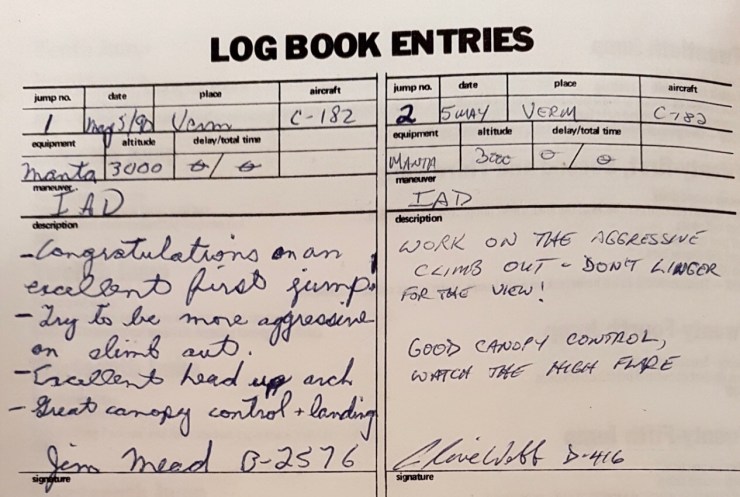 LOG BOOK ENTRIES
jump no. date place aircraft
1 May 5/90 Verm C-182
equipment altitude delay/total time
Manta 3000 0/0
maneuver
IAD
description
- Congratulations on an
excellent first jump.
- Try to be more aggressive
on climb out.
- Excellent head up arch
- Great canopy control + landing
Jim Mead B-2576
signature
jump no. date place aircraft
2 5 MAY VERM C-182
equipment altitude delay/total time
MANTA 3000 0/0
maneuver
IAD
description
WORK ON THE AGGRESSIVE
CLIMB OUT - DON'T LINGER
FOR THE VIEW!
GOOD CANOPY CONTROL,
WATCH THE HIGH FLARE
D-416
signature